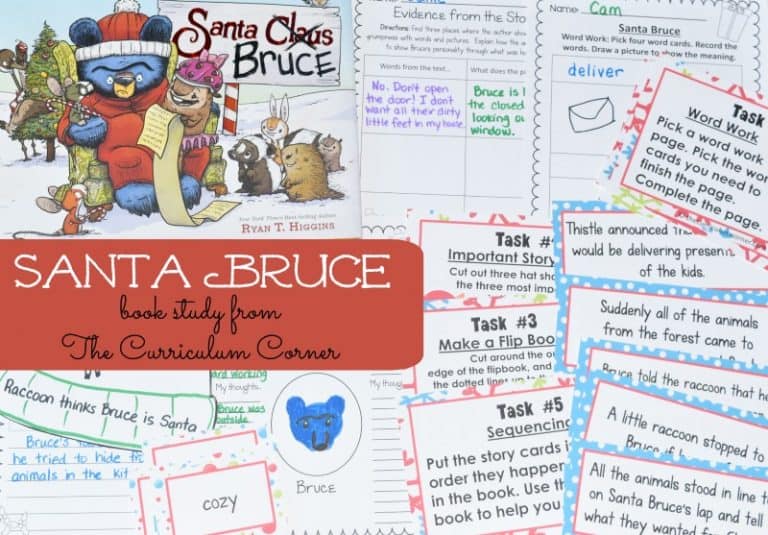 Santa Claus
BRUCE
RYAN T. HIGGINS
SANTA BRUCE
book study from
The Curriculum Corner
Evidence from the Sto
Directions: Find three places where the author
grumpiness with words and pictures. Explain how the
to show Bruce's personality through what was
Words from the text...
What does the
No. Don't open
the door! I don't
want all their dirty
little feet in my house.
Bruce is l
the closed
looking ou
window.
Name: Cam
Santa Bruce
Word Work: Pick four word cards. Record the
words. Draw a picture to show the meaning.
deliver
Task
Word Work
Pick a word work
page. Pick the wor
cards you need to
finish the page.
Complete the page.
Task #
Important Story
Cut out three hat sha
the three most imp
Task #3
Make a Flip Boo
Cut around the ou
edge of the flipbook, and
the dotted lines up to the
Task #5
Sequencing
Put the story cards i
order they happene
in the book. Use th
book to help you
Thistle announced
would be delivering presen
of the kids.
Suddenly all of the animals
from the forest came to
Bruce told the raccoon that he
A little raccoon stopped to
All the animals stood in line to
on Santa Bruce's lap and tell
what they wanted
Raccoon thinks Bruce is Santa.
Bruce's
he tried to hide
animals in the kit
and working
My thoughts..
Bruce was
outside
Bruce
My thoug
cozy